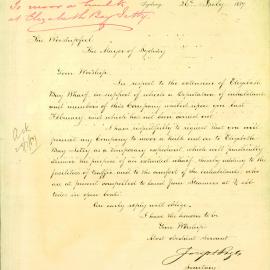 To moor a hulk
at Elizabeth Bay Jetty.
Sydney, 26th July 1889
The Worshipful
The Mayor of Sydney
Your Worship,
In regard to the extension of Elizabeth
Bay Wharf in support of which a deputation of inhabitants
and members of this Company waited upon you last
February, and which has not been carried out.
I have respectfully to request that you will
permit my Company to moor a hulk end on to Elizabeth
Bay Jetty as a temporary expedient which will practically
answer the purpose of an extended wharf, thereby adding to the
facilities of traffic and to the comfort of the inhabitants, who
are at present compelled to land from Steamers at
tides in open boat.
An early reply will oblige.
I have the honor to be
Your Worship
Most obedient servant
Secretary